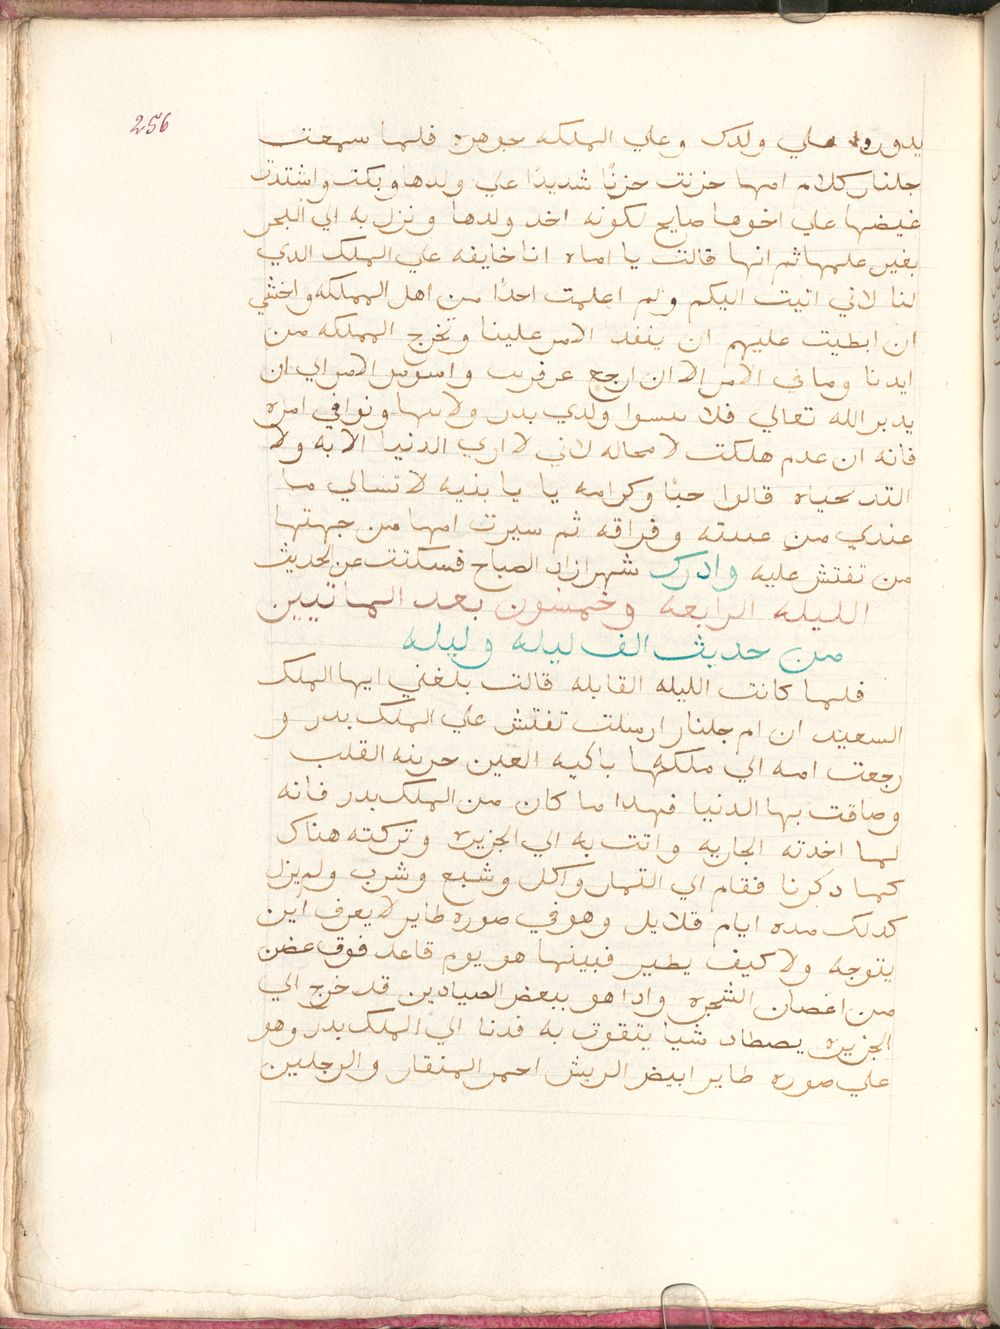 256
يدوروا علي ولدك وعلي الملكه جوهره فلما سمعت
جلنار كلام امها حزنت حزنًا شديدًا علي ولدها وبكت واشتدت
غيضها علي اخوها صايح لكونه اخد ولدها ونزل به الي البحر
بغير علمها ثم انها قالت يا اماه انا خايفه علي الملك الدي
لنا لاني اتيت اليكم ولم اعلمت احدًا من اهل المملكه واخشي
ان ابطيت عليهم ان ينفد الامر علينا وتخرج المملكه من
ايدنا وما في الامر الا ان ارجع عن قريب واسوس الامر الي ان
يدبر الله تعالي فلا تنسوا ولدي بدر ولا تتهاونوا في امره
فانه ان عدم هلكت لا محاله لاني لا اري الدنيا الا به ولا
التد بحياه قالوا حبًا وكرامه يا يا بنيه لا تسالي ما
عندي من غيبته وفراقه ثم سيرت امها من جهتها
من تفتش عليه وادرك شهرازاد الصباح فسكتت عن الحديث
الليله الرابعه وخمسون بعد الماتيين
من حديث الف ليله وليله
فلما كانت الليله القابله قالت بلغني ايها الملك
السعيد ان ام جلنار ارسلت تفتش علي الملك بدر و
رجعت امه الي ملكها باكيه العين حزينه القلب
وضاقت بها الدنيا فهدا ما كان من الملك بدر فانه
لما اخدته الجاريه واتت به الي الجزيره وتركته هناك
كما دكرنا فقام الي التمار واكل وشبع وشرب ولم يزل
كدلك مده ايام قلايل وهو في صوره طاير لا يعرف اين
يتوجه ولا كيف يطير فبينها هو يوم قاعد فوق غضن
من اغصان الشجره وادا هو ببعض الصيادين قد خرج الي
الجزيره يصطاد شيا يتقوت به فدنا الي الملك بدر وهو
علي صوره طاير ابيض الريش احمر المنقار والرجلين